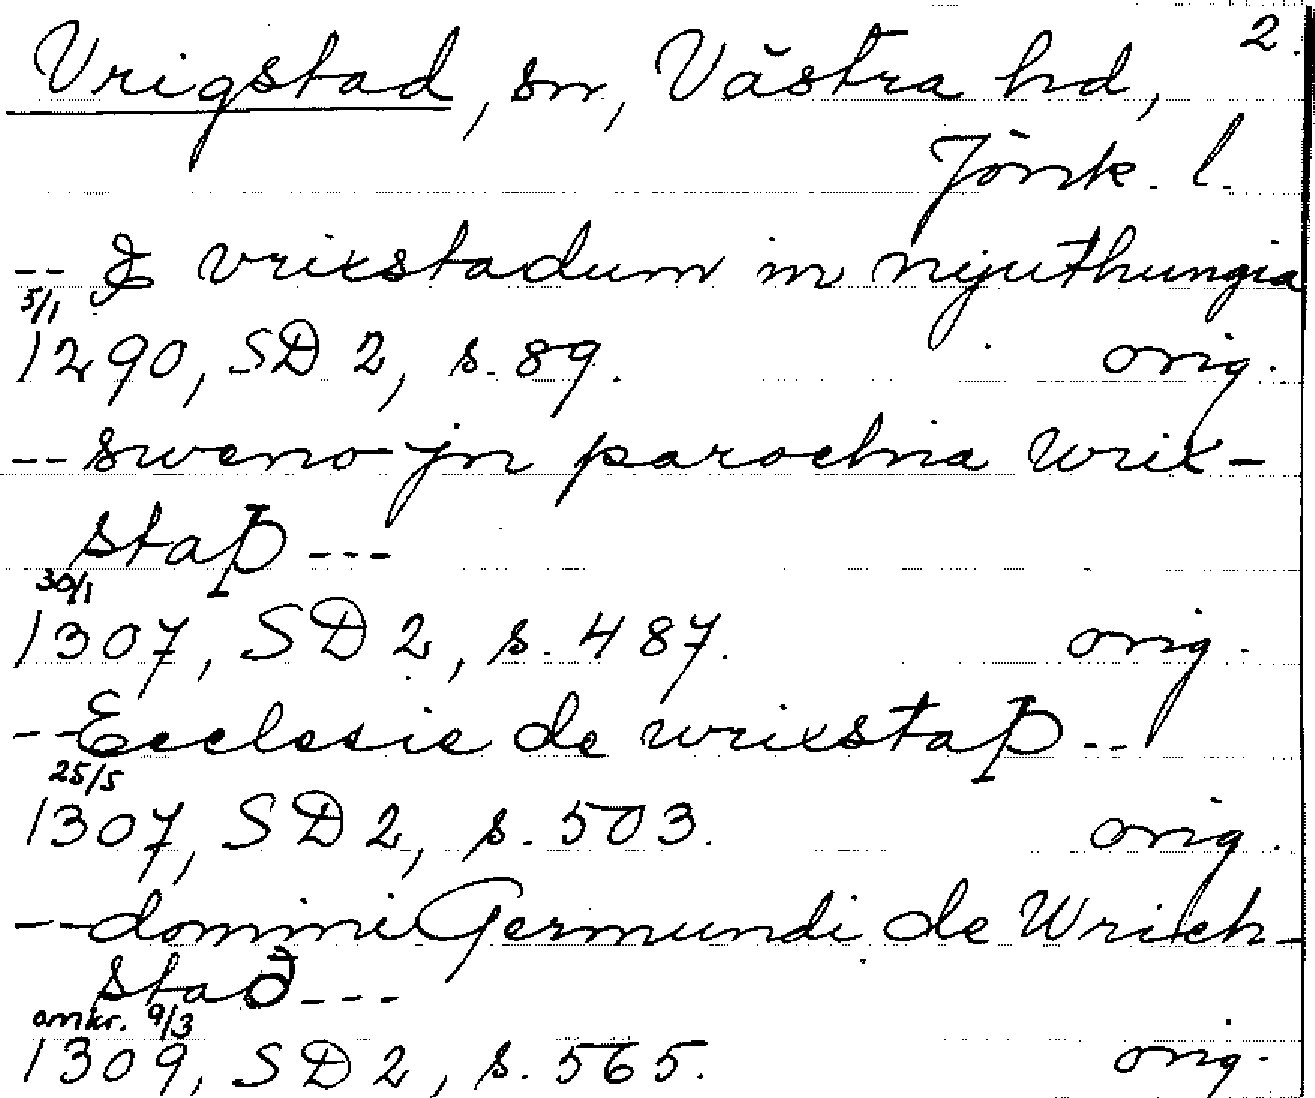 2.
Vrigstad, sn, Västra hd,
Jönk. l.
-- J vrixstadum in nyuthungia
5/1
1290, SD 2, s. 89. orig.
-- sweno jn parochia wrix-
staþ ---
30/1
1307, SD 2, s. 487. orig.
-- Ecclesie de wrixstaþ --
25/5
1307, SD 2, s. 503. orig.
-- domini Germundi de Wrich-
stað ---
omkr. 9/3
1309, SD 2, s. 565. orig.